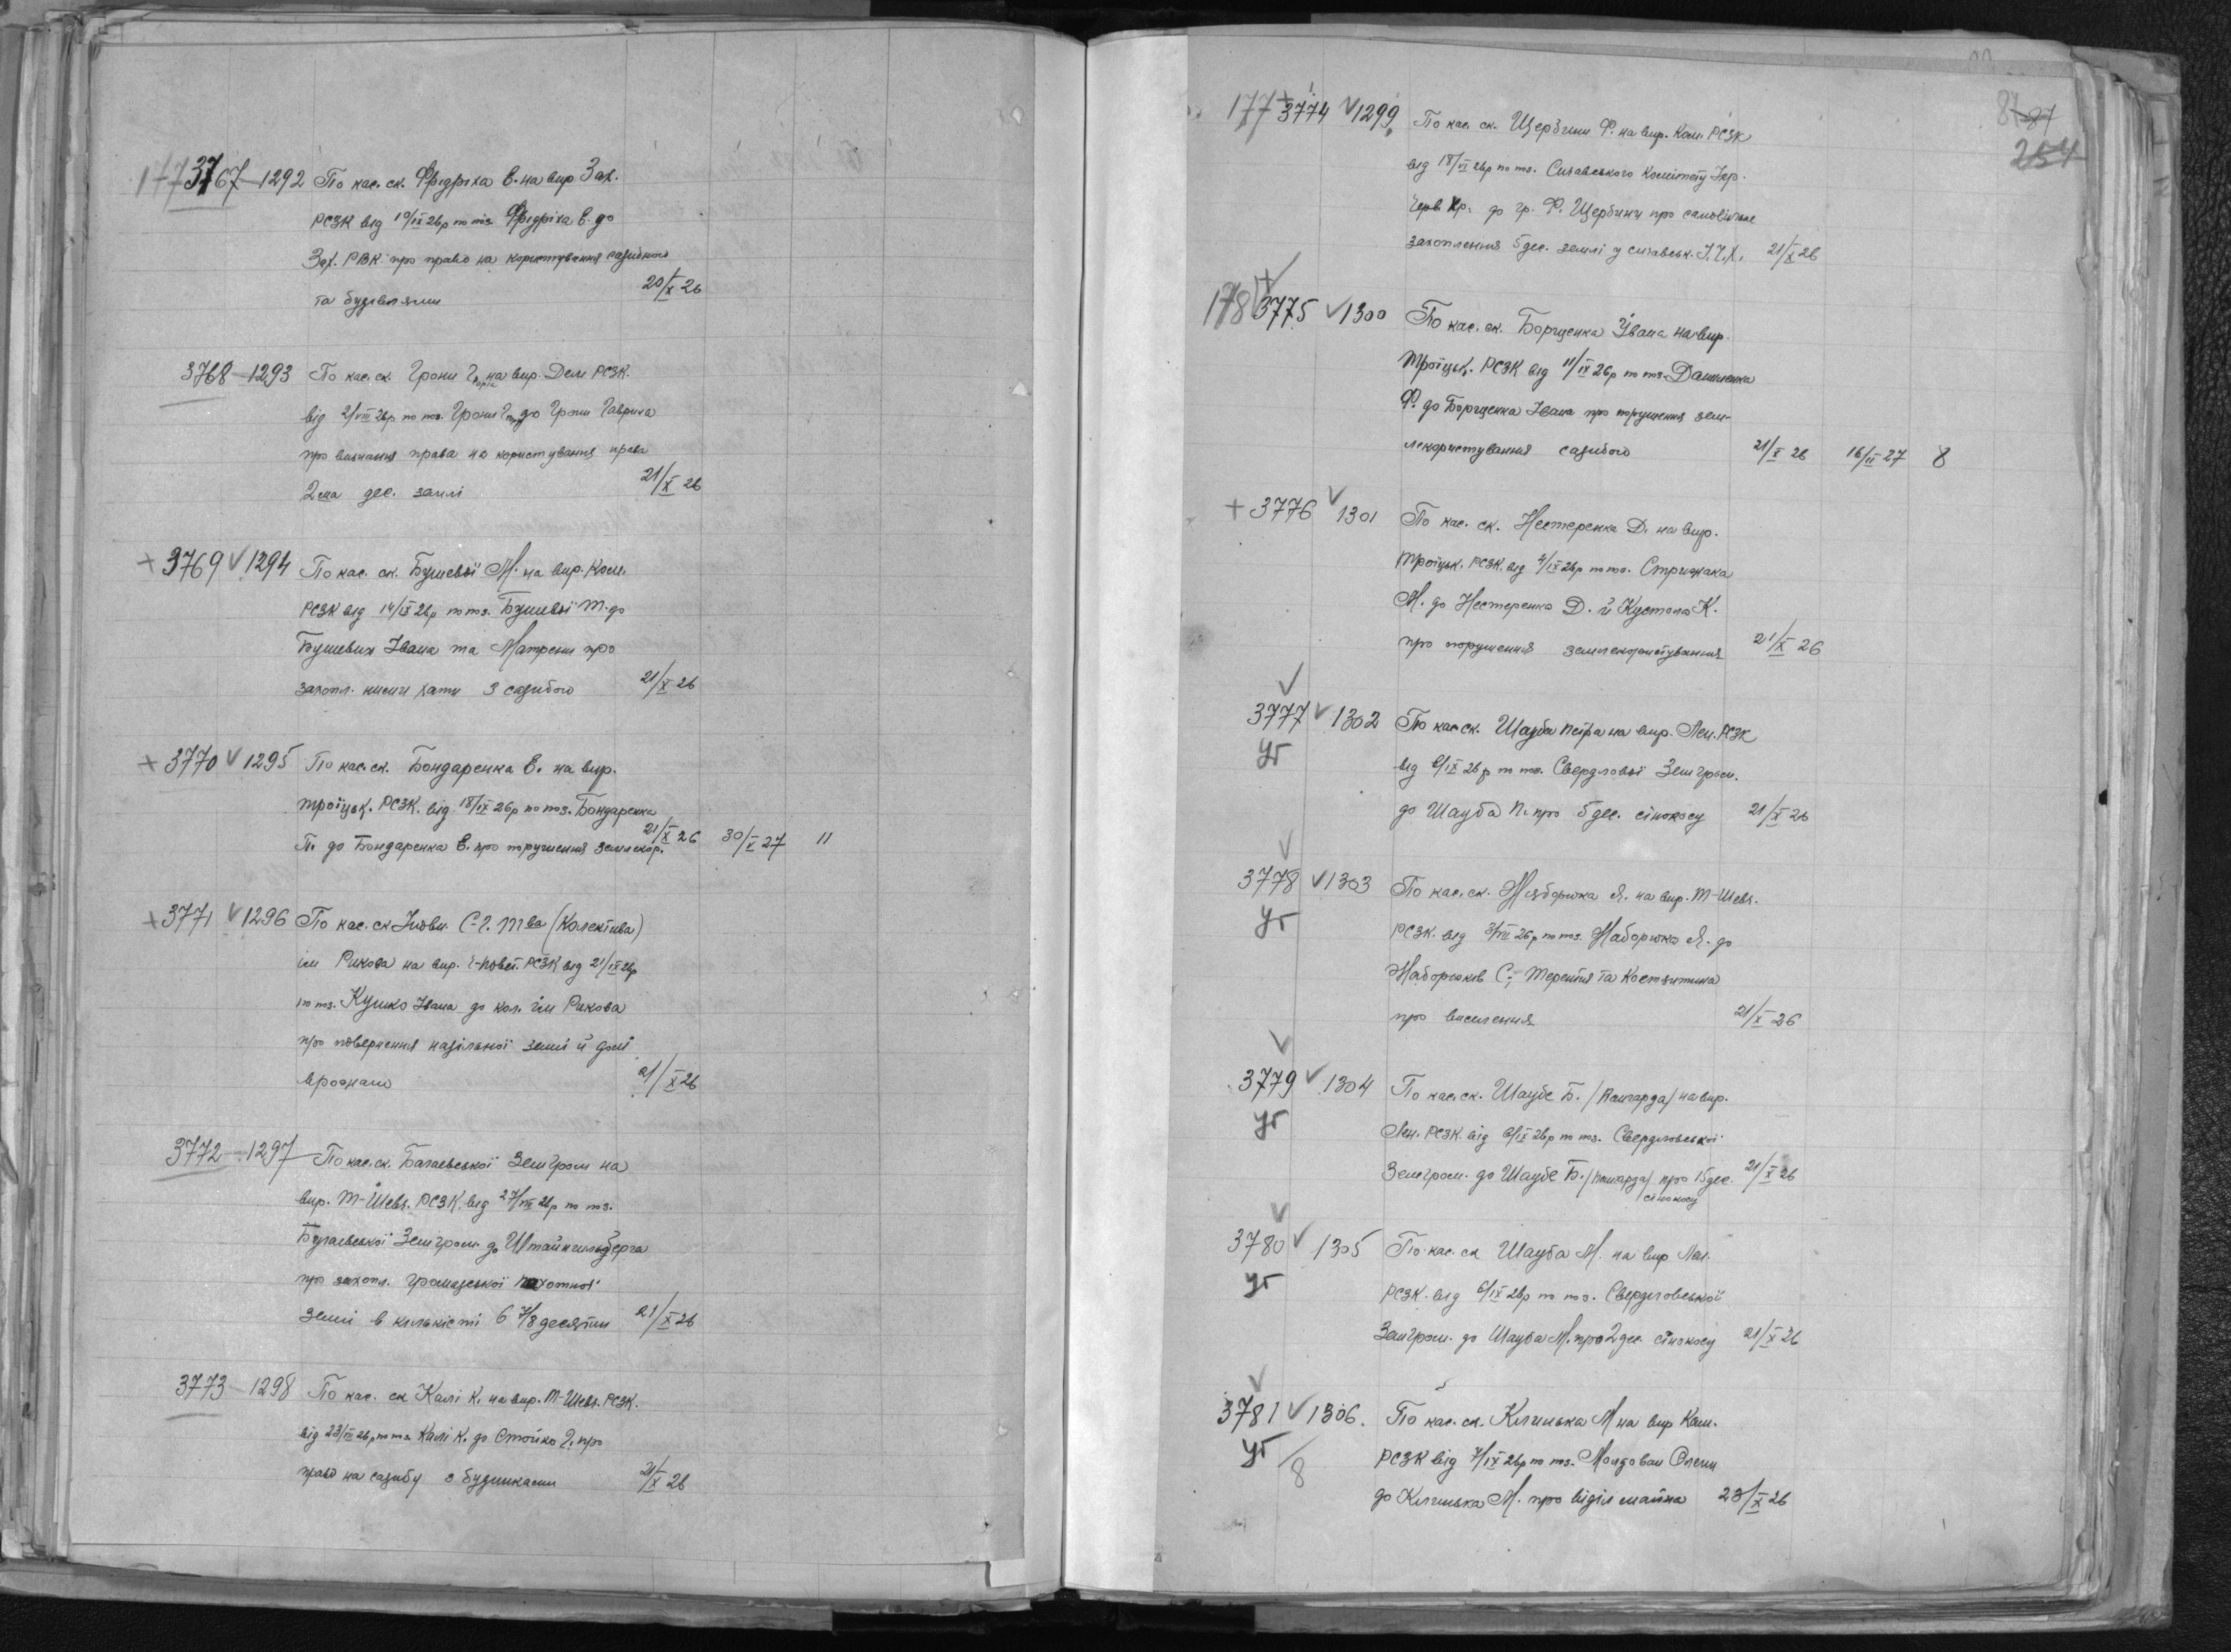 177 3767 — 1292 По кас. ск. Фрідріха Е. на вир. Зах.
РСЗК від 10/IX 26р по тз. Фрідріха Е. до
Зах. РВК про право на користування садибою
та будівлями 20/X 26
3768 — 1293 По кас. ск. Грони на вир. РСЗК.
від 2/VIII 26р по тз. Грони до Грони Гаврила
про визнання права на користування права
2ма дес. землі 21/X 26
+ 3769 V 1294 По кас. ск. Бушевої М. на вир. Ком.
РСЗК від 14/IX 26р по тз. Бушевої М. до
Бушевих Івана та Матрени про
захопл. хати з садибою 21/X 26
+ 3770 V 1295 По кас. ск. Бондаренка Е. на вир.
Троїцьк. РСЗК. від 18/IX 26р по тз. Бондаренка
П. до Бондаренка Е. про порушення землекор. 21/X 26 30/V 27 11
+ 3771 V 1296 По кас. ск. С-Г. Т-ва (Колектива)
ім Рикова на вир. РСЗК від 21/IX 26р
по тз. Кушко Івана до кол. ім Рикова
про повернення надільної землі й долі
врожаю 21/X 26
3772 — 1297 По кас. ск. Багаевської Земгром на
вир. Т-Шевч. РСЗК. від 27/VIII 26р по тз.
Земгром. до
про захопл. громадської пахотної
землі в кількісті 6 7/8 десятин 21/X 26
3773 — 1298 По кас. ск Калі К. на вир. Т-Шевч. РСЗК.
від 23/VIII 26р по тз. Калі К. до Стойко Г. про
право на садибу з будинками 21/X 26
87 87
254
177 + 3774 V 1299 По кас. ск. Щербини Ф. на вир. Ком. РСЗК
від 18/VI 26р по тз. Комітету
Черв. Хр. до гр. Ф. Щербини про самовільне
захоплення 5 дес. землі у 21/X 26
178 3775 V 1300 По кас. ск. Борщенка Івана на вир.
Троїцьк. РСЗК від 11/IX 26р по тз. Даниленка
Ф. до Борщенка Івана про порушення зем-
лекористування садибою 21/X 26 16/II 27 8
+ 3776 V 1301 По кас. ск. Нестеренка Д. на вир.
Троїцьк. РСЗК. від 4/IX 26р по тз. Стрижака
М. до Нестеренка Д. й Кустола К.
про порушення землекористування 21/X 26
3777 V 1302 По кас. ск. Шауба Петра на вир. Лен. РСЗК
уг від 6/IX 26р по тз. Свердлової Земгром.
до Шауба П. про 5 дес. сінокосу 21/X 26
3778 V 1303 По кас. ск. Жаборюка Я. на вир. Т-Шевч.
уг РСЗК. від 3/VIII 26р по тз. Жаборюка Я. до
Жаборюків С., Терентія та Костянтина
про виселення 21/X 26
3779 V 1304 По кас. ск. Шаубе Б. / / на вир.
уг Лен. РСЗК. від 6/IX 26р по тз. Свердловської
Земгром. до Шаубе Б. / / про 15 дес. 21/X 26
сінокосу
3780 V 1305 По кас. ск Шауба М. на вир Лен.
уг РСЗК. від 6/IX 26р по тз. Свердловської
Земгром. до Шауба М. про 2 дес. сінокосу 21/X 26
3781 V 1306. По кас. ск. Клинька М на вир Ком.
уг/8 РСЗК від 7/IX 26р по тз. Молдован Олени
до Клинька М. про віділ майна 23/X 26